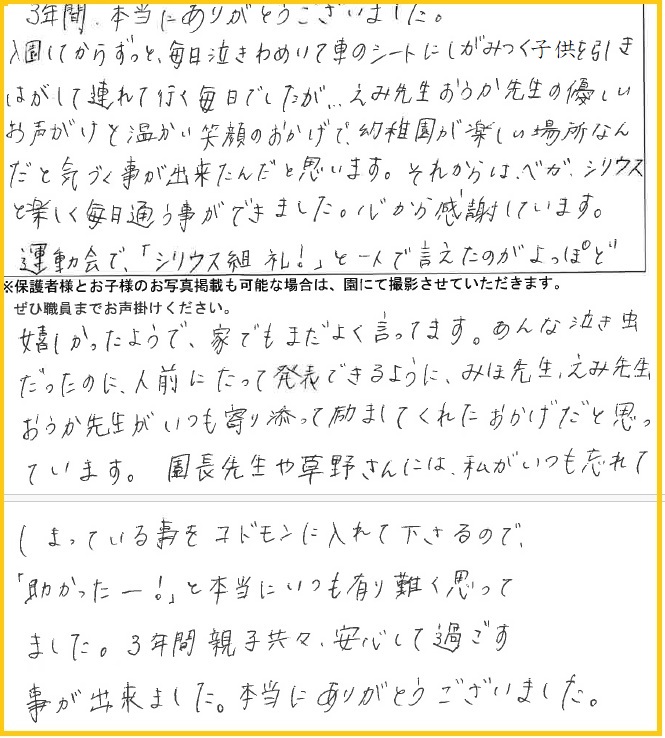 3年間、本当にありがとうございました。
入園してからずっと、毎日泣きわめいて車のシートにしがみつく子供を引き
はがして連れて行く毎日でしたが、えみ先生おうか先生の優しい
お声がけと温かい笑顔のおかげで、幼稚園が楽しい場所なん
だと気づく事が出来たんだと思います。それからは、ベガ、シリウス
と楽しく毎日通う事ができました。心から感謝しています。
運動会で、「シリウス組 礼!」と一人で言えたのがよっぽど
※保護者様とお子様のお写真掲載も可能な場合は、園にて撮影させていただきます。
ぜひ職員までお声掛けください。
嬉しかったようで、家でもまだよく言ってます。あんな泣き虫
だったのに、人前にたって発表できるように、みほ先生、えみ先生、
おうか先生がいつも寄り添って励ましてくれたおかげだと思っ
ています。 園長先生や草野さんには、私がいつも忘れて
しまっている事をコドモンに入れて下さるので、
「助かったー!」と本当にいつも有り難く思って
ました。3年間親子共々、安心して過ごす
事が出来ました。本当にありがとうございました。